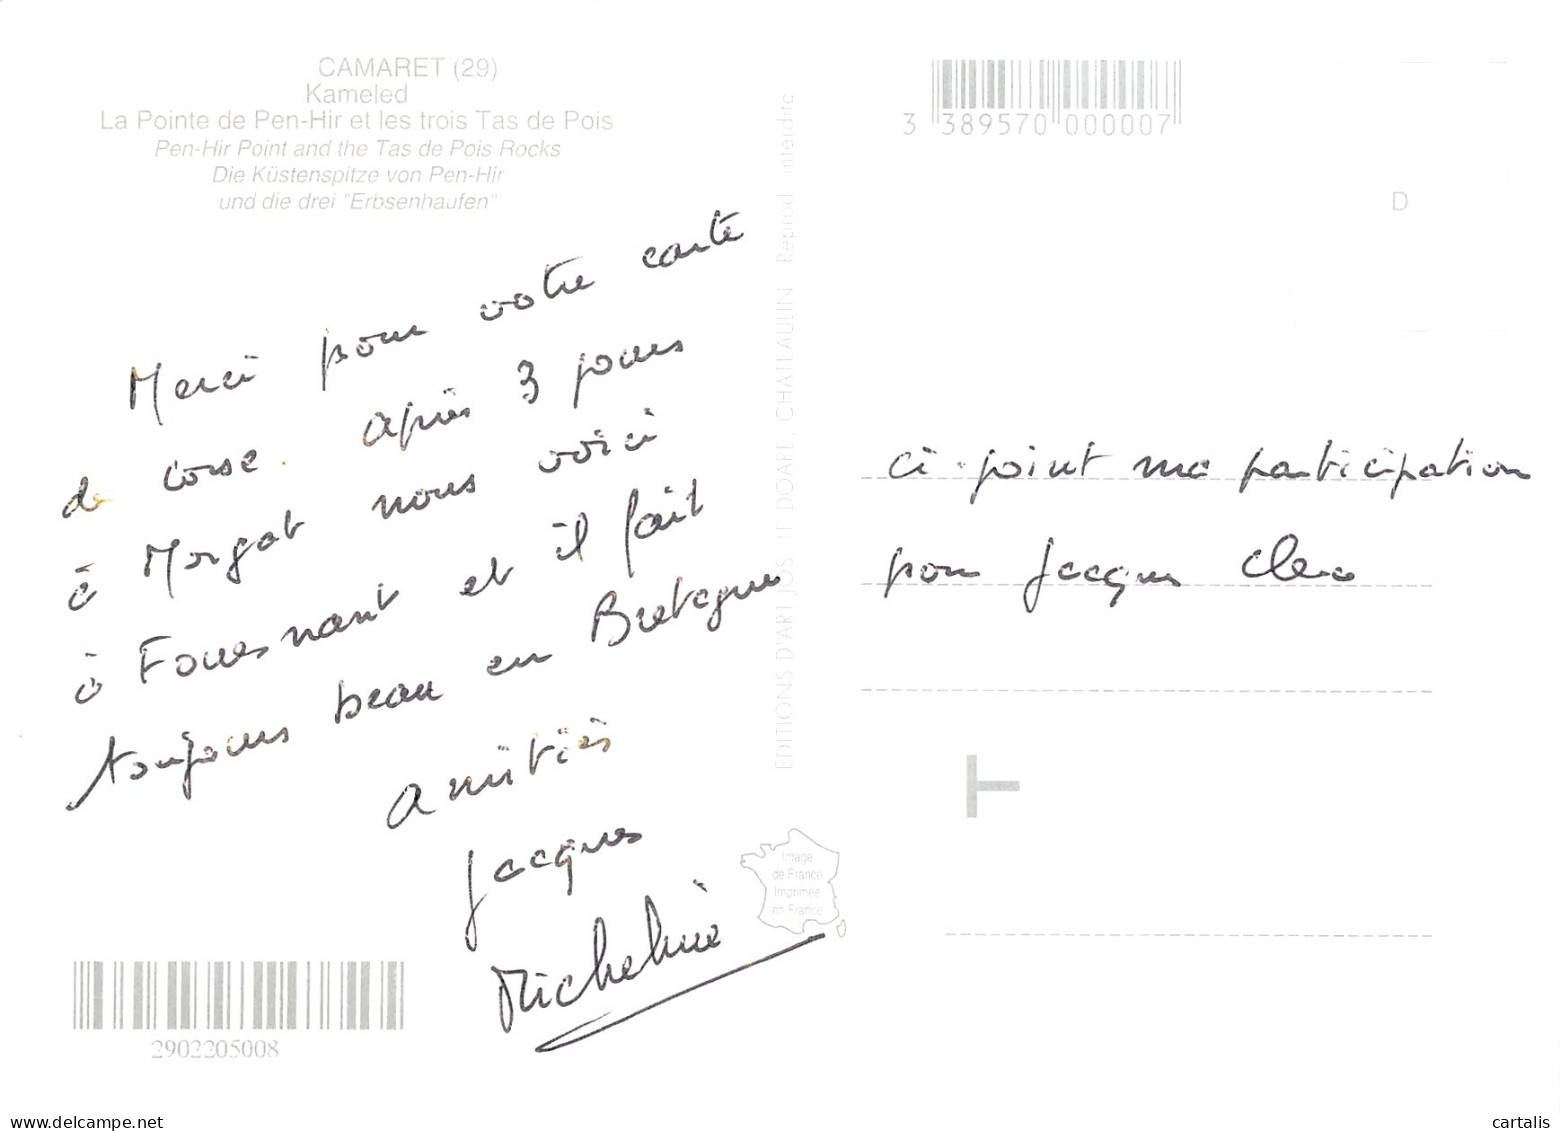 CAMARET (29)
Kameled
La Pointe de Pen-Hir et les trois Tas de Pois
Pen-Hir Point and the Tas de Pois Rocks
Die Küstenspitze von Pen-Hir
und die drei "Erbsenhaufen"
Merci pour votre carte
de corse. après 3 jours
à Morgat nous voici
à Fouesnant et il fait
toujours beau en Bretagne
amitiés
Jacques
Micheline
2902205008
EDITIONS D'ART JOS LE DOARE, CHATEAULIN Reprod interdite
Image
de France
Imprimée
en France
3 389570 000007
D
ci-joint ma participation
pour Jacques
T
delcampe.net
cartalis